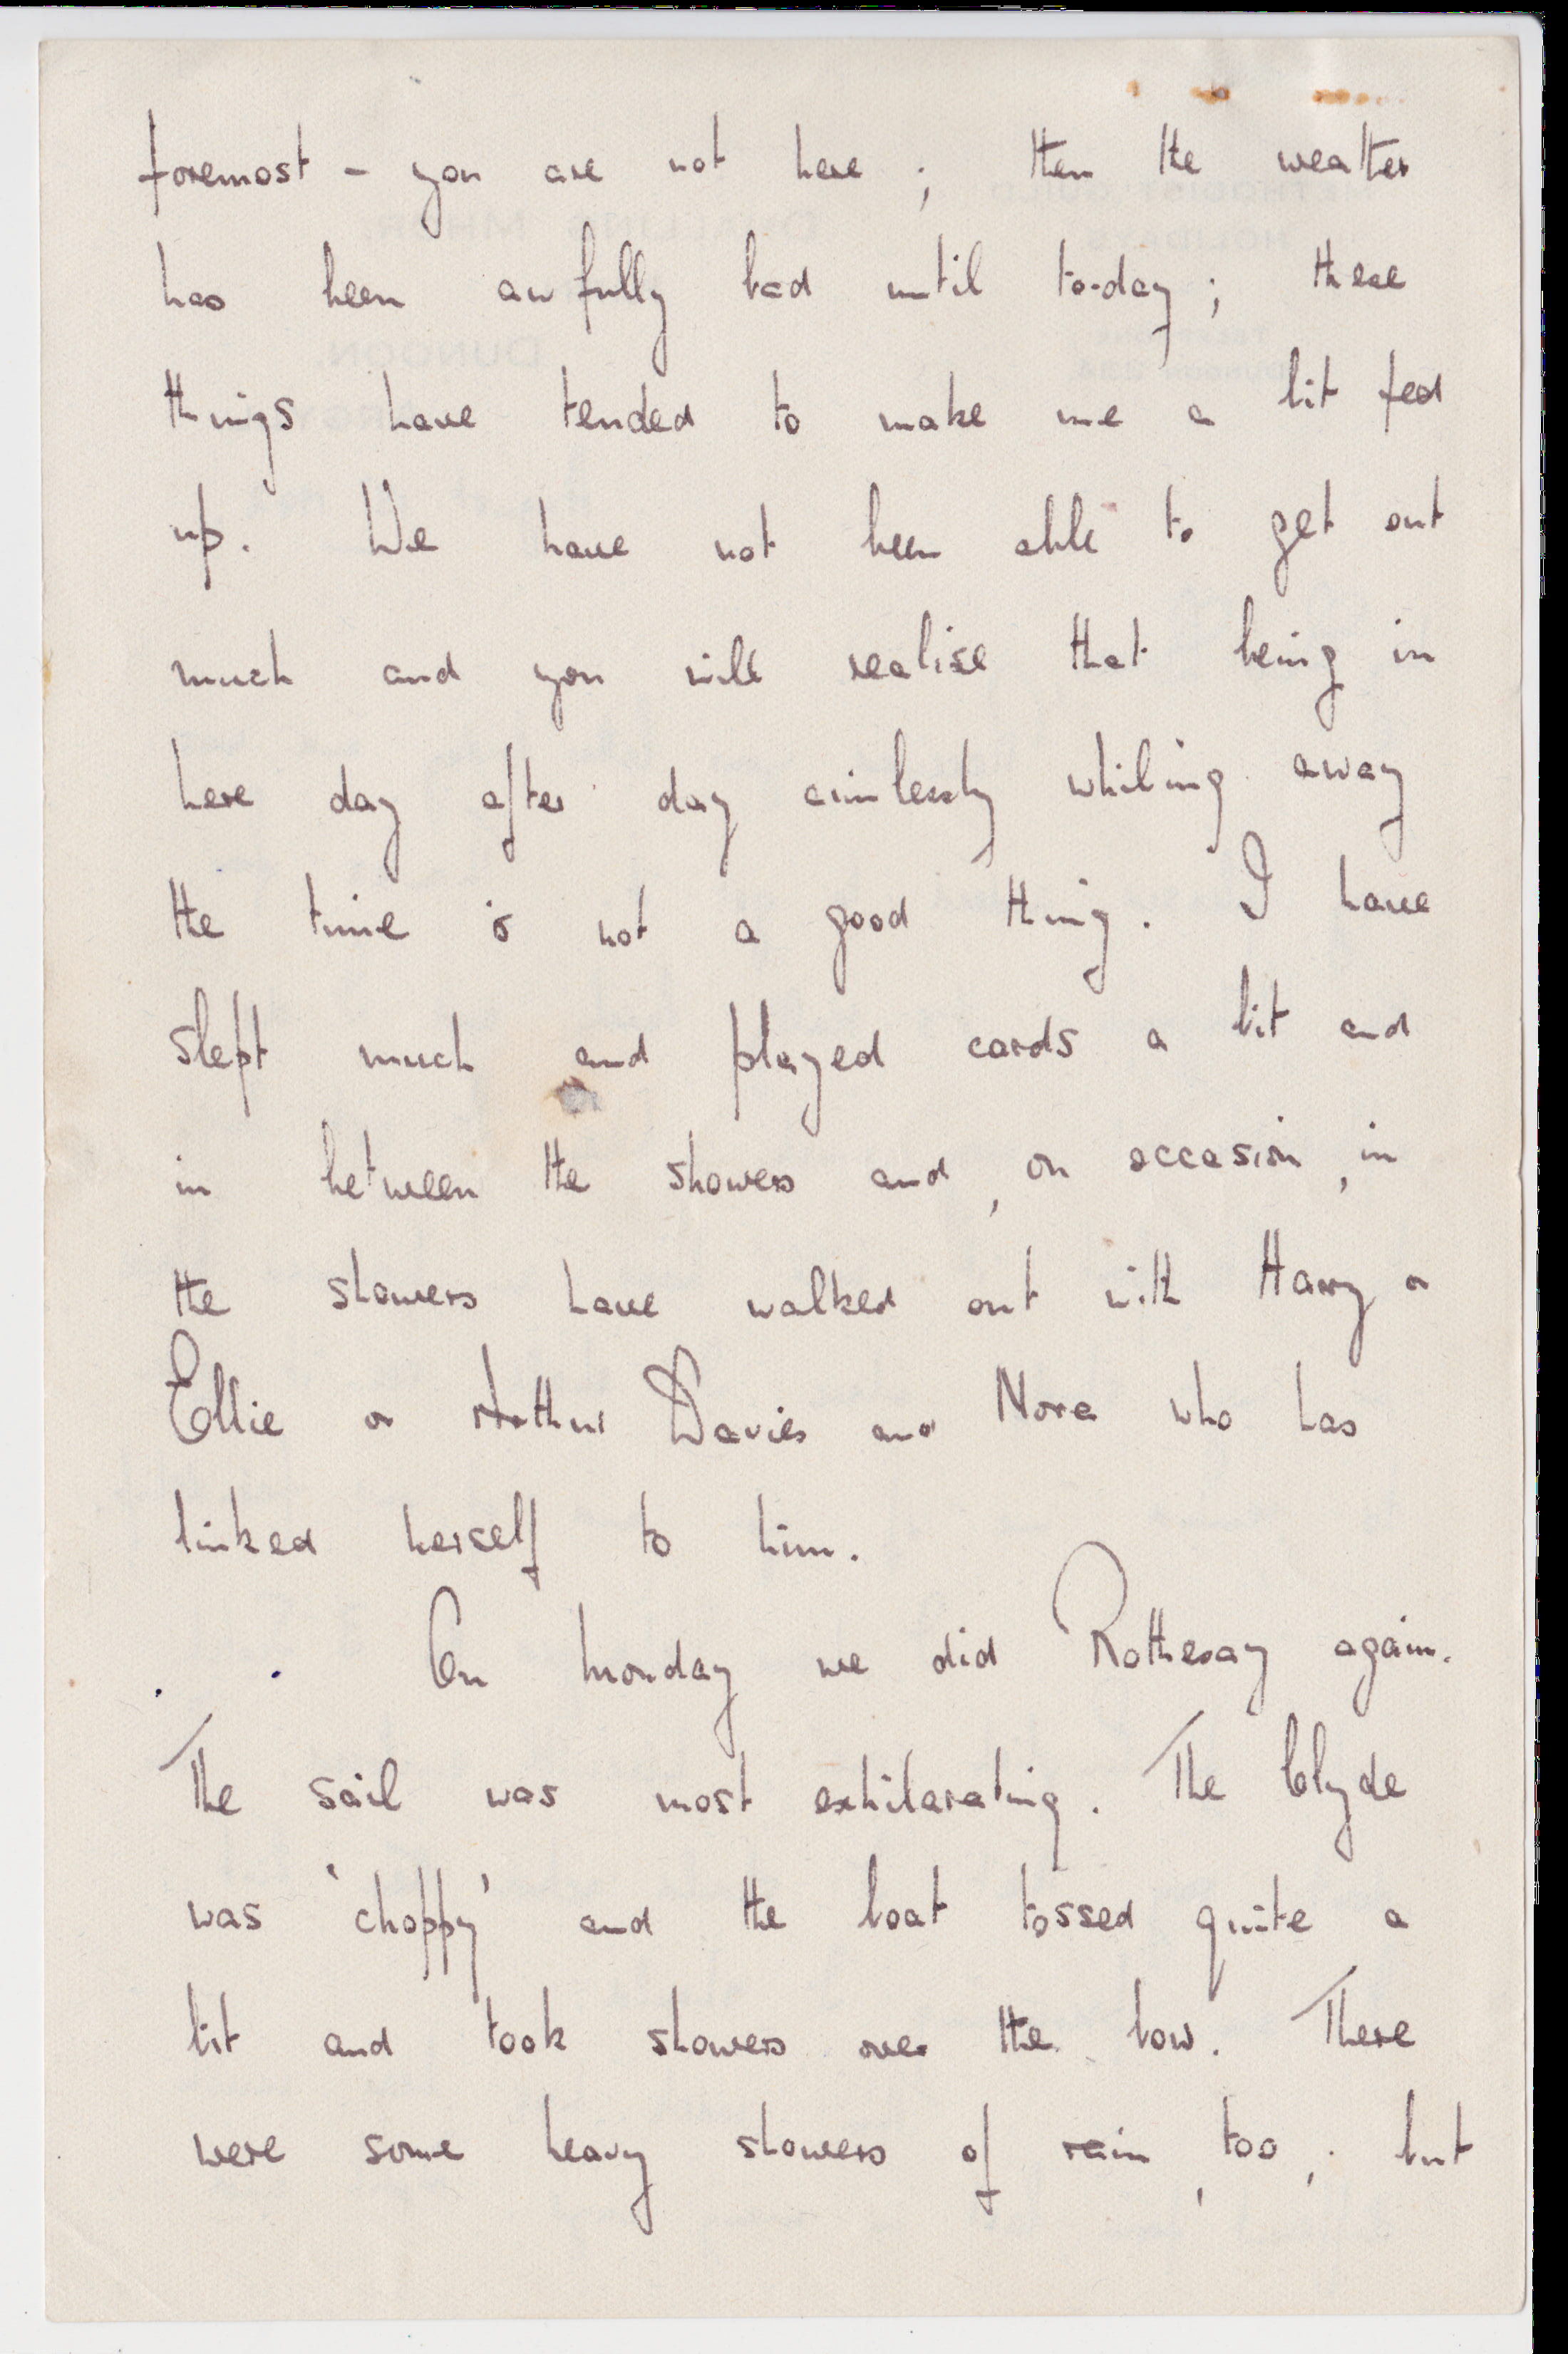 foremost - you are not here ; then the weather
has been awfully bad until to-day ; these
things have tended to make me a bit fed
up. We have not been able to get out
much and you will realise that being in
here day after day aimlessly whiling away
the time is not a good thing. I have
slept much and played cards a bit and
in between the showers and , on occasion , in
the showers have walked out with Harry or
Ellie or Arthur Davies and Nora who has
linked herself to him.
On Monday we did Rothesay again.
The sail was most exhilarating. The Clyde
was 'choppy' and the boat tossed quite a
bit and took showers over the bow. There
were some heavy showers of rain , too , but